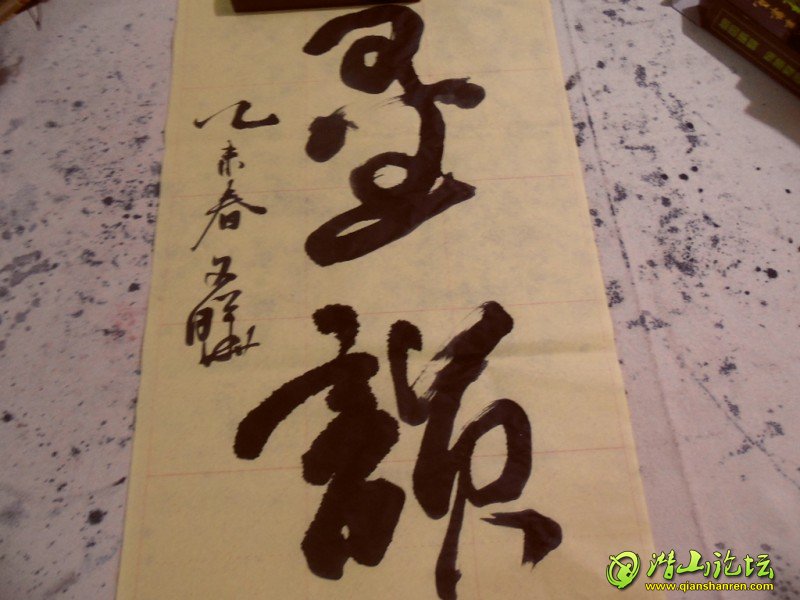 墨韻
乙未春
潜山论坛
www.qianshanren.com